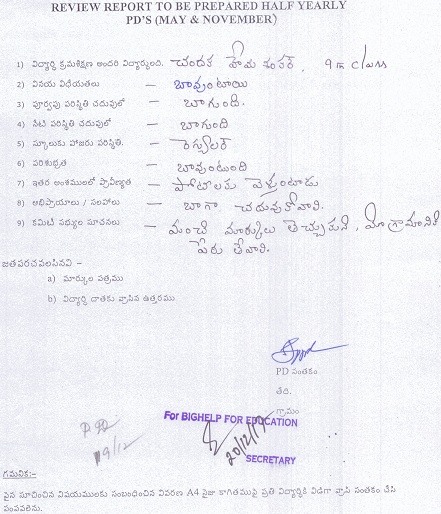 REVIEW REPORT TO BE PREPARED HALF YEARLY
PD'S (MAY & NOVEMBER)
1) విద్యార్థి క్రమశిక్షణ అందరి విద్యార్థులంది. - చందక హేమ శంకర్, 9th class
2) వినయ విధేయతలు - బావుంటాయి
3) పూర్వపు పరిస్థితి చదువులో - బాగుంది.
4) నేటి పరిస్థితి చదువులో - బాగుంది
5) స్కూలుకు హాజరు పరిస్థితి. - రెగ్యులర్
6) పరిశుభ్రత - బావుంటుంది
7) ఇతర అంశములలో ప్రావీణ్యత - పోటీలకు వెళ్తుంటాడు
8) అభిప్రాయాలు / సలహాలు - బాగా చదువుకోవాలి.
9) కమిటీ సభ్యుల సూచనలు - మంచి మార్కులు తెచ్చుకుని, మా గ్రామానికి
పేరు తేవాలి.
జతపరచవలసినవి -
a) మార్కుల పత్రము
b) విద్యార్థి దాతకు వ్రాసిన ఉత్తరము
PD సంతకం
తేది.
గ్రామం
For BIGHELP FOR EDUCATION
20/12/17
SECRETARY
19/12
గమనిక:-
పైన సూచించిన విషయములకు సంబంధించిన వివరణ A4 సైజు కాగితముపై ప్రతి విద్యార్థికి విడిగా వ్రాసి సంతకం చేసి
పంపవలెను.